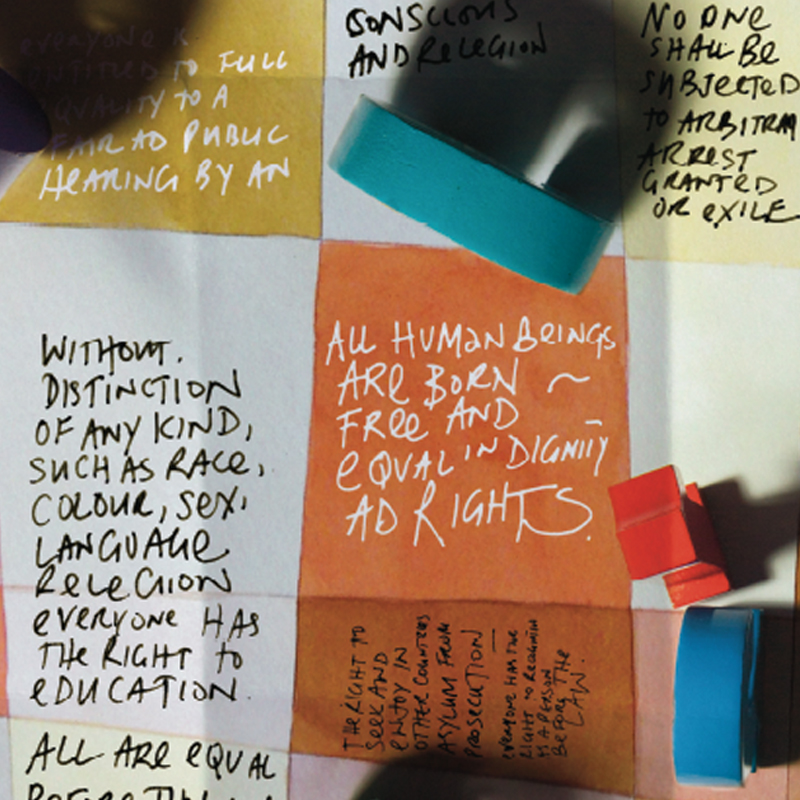 everyone is
entitled to FULL
EQUALITY TO A
FAIR AD PUBLIC
HEARING BY AN
CONSCIOUS
AND ReLeGION
NO ONE
SHALL Be
SUBJecTeD
to ARBITRAR
ARREST
GRANTED
OR eXILE
WITHOUT.
DISTINCTION
OF ANY KIND,
SUCH AS RACe,
COLOUR, SeX,
LANGUAGe
ReLeGION
eVeRYONe HAS
THe RIGHT to
eDUCATION.
ALL HUMaN BeINGS
ARe BORN ~
FRee AND
eQUAL IN DIGNITY
AD RIGHTS.
THe RIGHT TO
SeeK AND
eNJOY IN
OTHeR COUNTRIES
ASYLUM FROM
PROSECUTION —
eveRYONe HAS THe
RIGHT TO RECOGNITION
AS A PERSON
BeFORe THe
LAW.
ALL ARe eQUAL
BEFORE THE